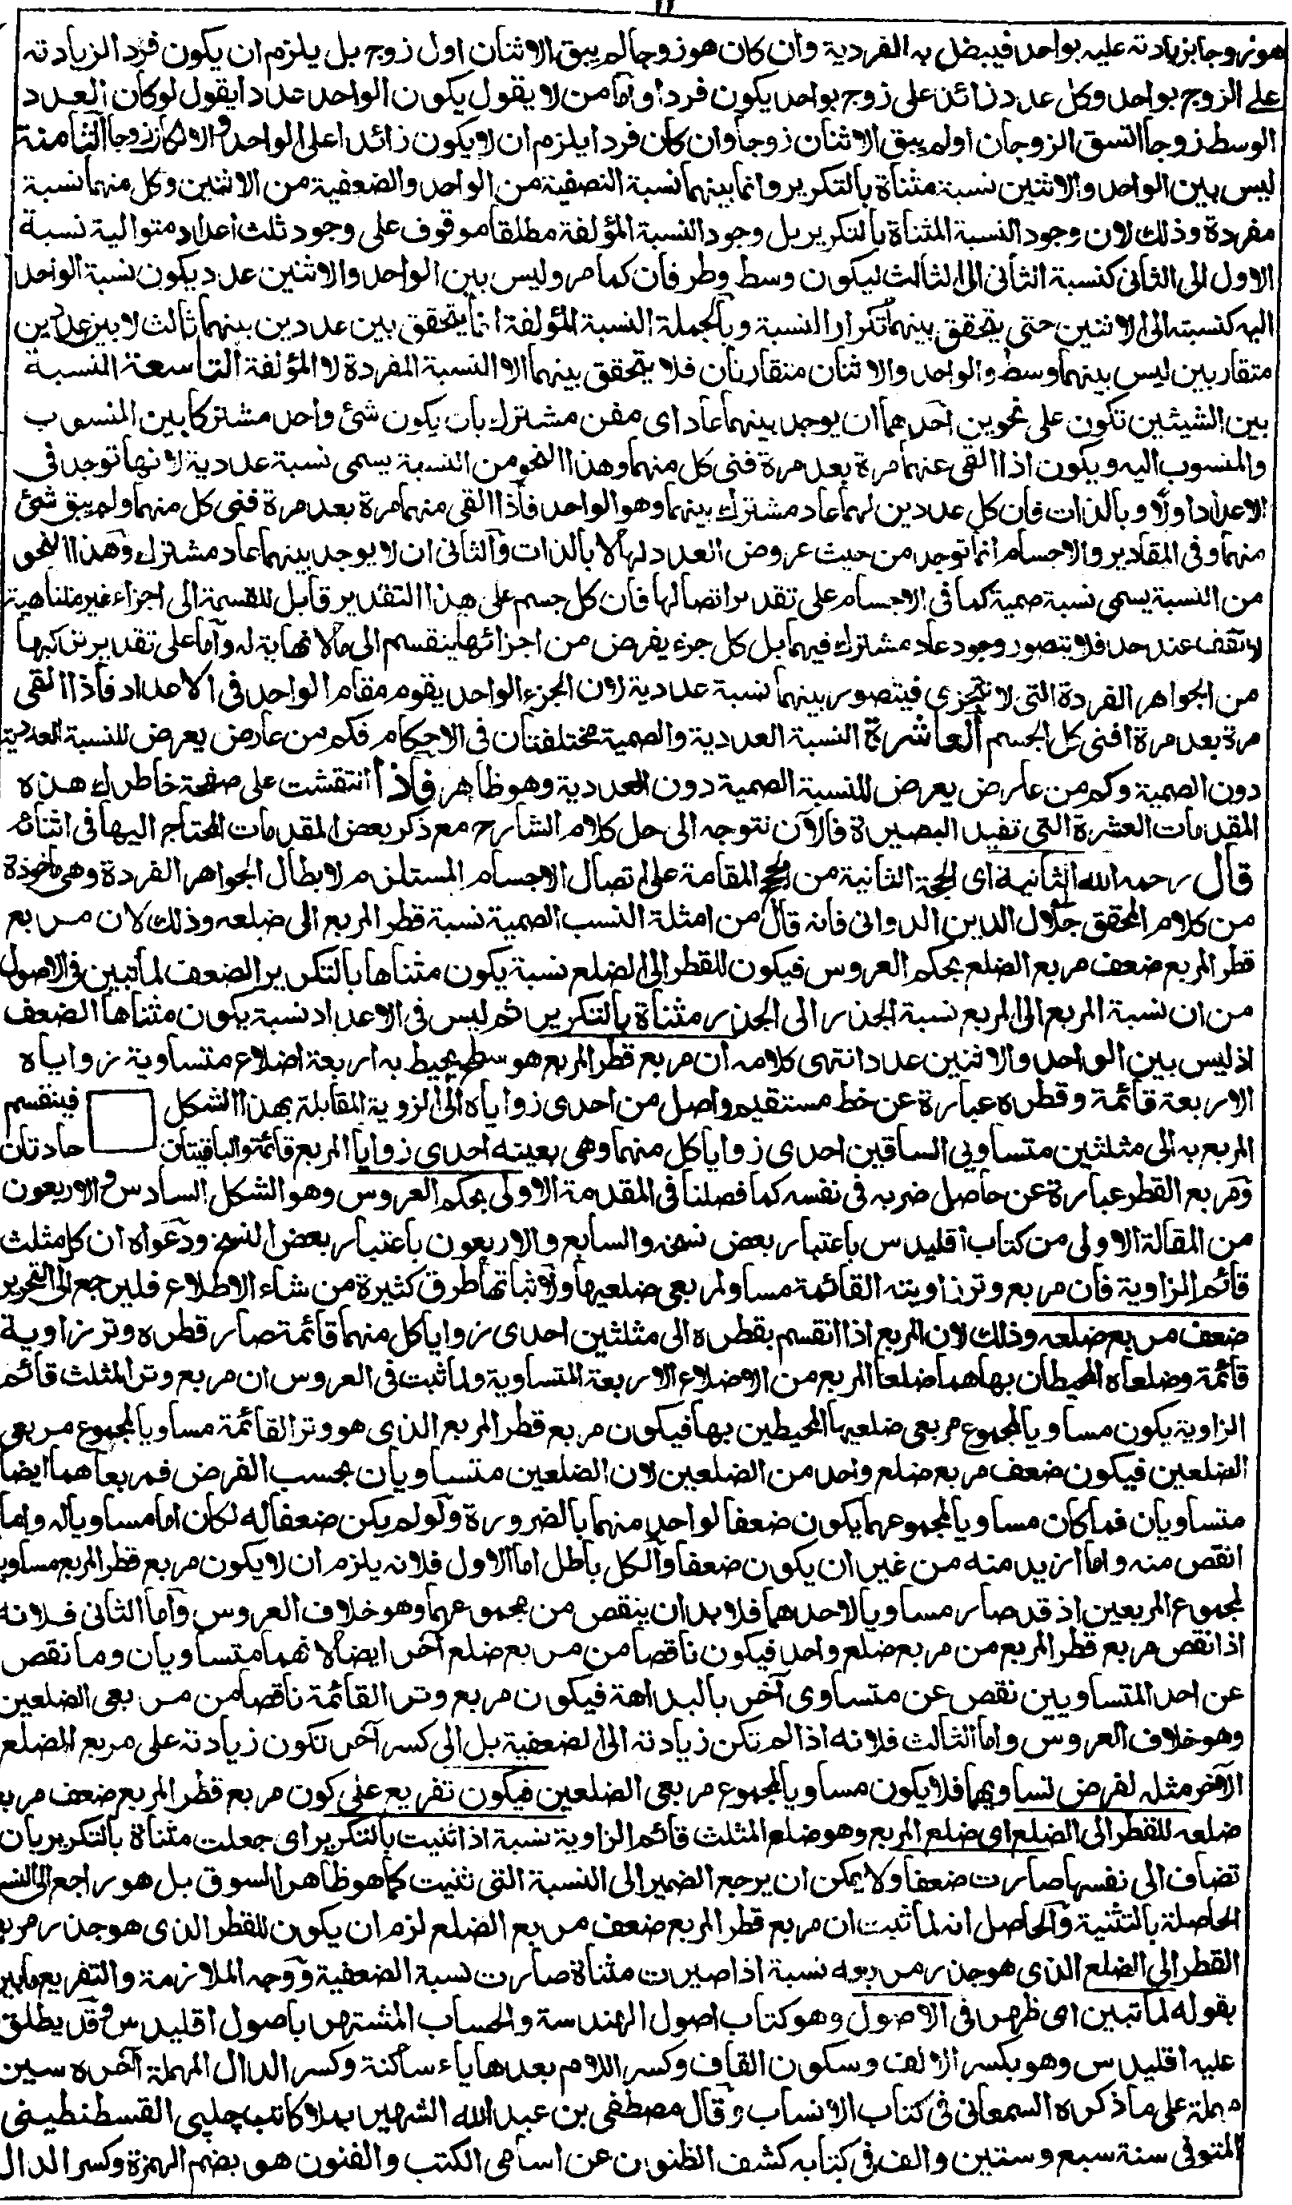 ١١
هو زوجا بزيادته عليه بواحد فيبطل به الفردية وان كان هو زوجا لم يبق الاثنان اول زوج بل يلزم ان يكون فرد الزيادته
على الزوج بواحد وكل عدد زائد على زوج بواحد يكون فردا واما من لا يقول يكون الواحد عددا يقول لو كان العدد
الوسط زوجا التسق الزوجان او لم يبق الاثنان زوجا وان كان فردا يلزم ان لا يكون زائدا على الواحد والا لكان زوجا الثامنة
ليس بين الواحد والاثنين نسبة مثناة بالتكرير وانما بينهما نسبة النصفية من الواحد والضعفية من الاثنين وكل منهما نسبة
مفردة وذلك لان وجود النسبة المثناة بالتكرير بل وجود النسبة المؤلفة مطلقا موقوف على وجود ثلث اعداد متوالية نسبة
الاول الى الثانى كنسبة الثانى الى الثالث ليكون وسط وطرفان كما مر وليس بين الواحد والاثنين عدد يكون نسبة الواحد
اليه كنسبته الى الاثنين حتى يتحقق بينهما تكرار النسبة وبالجملة النسبة المؤلفة انما يتحقق بين عددين بينهما ثالث لا بين عددين
متقاربين ليس بينهما وسط والواحد والاثنان متقاربان فلا يتحقق بينهما الا النسبة المفردة لا المؤلفة التاسعة النسبة
بين الشيئين تكون على نحوين احدهما ان يوجد بينهما عاد اى مفن مشترك بان يكون شئ واحد مشتركا بين المنسوب
والمنسوب اليه ويكون اذا القى عنهما مرة بعد مرة فنى كل منهما وهذا النحو من النسبة يسمى نسبة عددية لانها توجد فى
الاعداد اولا وبالذات فان كل عددين لهما عاد مشترك بينهما وهو الواحد فاذا القى منهما مرة بعد مرة فنى كل منهما ولم يبق شئ
منهما وفى المقادير والاجسام انما توجد من حيث عروض العدد لها لا بالذات والثانى ان لا يوجد بينهما عاد مشترك وهذا النحو
من النسبة يسمى نسبة صمية كما فى الاجسام على تقدير اتصالها فان كل جسم على هذا التقدير قابل للقسمة الى اجزاء غير متناهية
لا تقف عند حد فلا يتصور وجود عاد مشترك فيهما بل كل جزء يفرض من اجزائها ينقسم الى ما لا نهاية له واما على تقدير تركبها
من الجواهر الفردة التى لا تتجزى فيتصور بينهما نسبة عددية لان الجزء الواحد يقوم مقام الواحد فى الاعداد فاذا القى
مرة بعد مرة افنى كل الجسم العاشرة النسبة العددية والصمية مختلفتان فى الاحكام فكم من عارض يعرض للنسبة العددية
دون الصمية وكم من عارض يعرض للنسبة الصمية دون العددية وهو ظاهر فاذا انتقشت على صفحة خاطرك هذه
المقدمات العشرة التى تفيد البصيرة فالآن نتوجه الى حل كلام الشارح مع ذكر بعض المقدمات المحتاج اليها فى اثنائه
قال رحمه الله الثانية اى الحجة الثانية من الحجج المقامة على اتصال الاجسام المستلزم لابطال الجواهر الفردة وهى ماخوذة
من كلام المحقق جلال الدين الدوانى فانه قال من امثلة النسب الصمية نسبة قطر المربع الى ضلعه وذلك لان مربع
قطر المربع ضعف مربع الضلع بحكم العروس فيكون للقطر الى الضلع نسبة يكون مثناها بالتكرير الضعف لما تبين فى الاصول
من ان نسبة المربع الى المربع نسبة الجذر الى الجذر مثناة بالتكرير ثم ليس فى الاعداد نسبة يكون مثناها الضعف
اذ ليس بين الواحد والاثنين عدد انتهى كلامه ان مربع قطر المربع هو سطح يحيط به اربعة اضلاع متساوية زواياه
الاربعة قائمة وقطره عبارة عن خط مستقيم واصل من احدى زواياه الى الزوية المقابلة بهذا الشكل فينقسم
المربع به الى مثلثين متساويى الساقين احدى زوايا كل منهما وهى بعينه احدى زوايا المربع قائمتو الباقيتان حادتان
ومربع القطر عبارة عن حاصل ضربه فى نفسه كما فصلنا فى المقدمة الاولى بحكم العروس وهو الشكل السادس والاربعون
من المقالة الاولى من كتاب اقليدس باعتبار بعض نسخه والسابع والاربعون باعتبار بعض النسخ ودعواه ان كل مثلث
قائم الزاوية فان مربع وتر زاويته القائمة مساو لمربعى ضلعيها ولاثباتها طرق كثيرة من شاء الاطلاع فليرجع الى التحرير
ضعف مربع ضلعه وذلك لان المربع اذا انقسم بقطره الى مثلثين احدى زوايا كل منهما قائمة صار قطره وتر زاوية
قائمة وضلعاه المحيطان بها هما ضلعا المربع من الاضلاع الاربعة المتساوية ولما ثبت فى العروس ان مربع وتر المثلث قائم
الزاوية يكون مساويا لمجموع مربعى ضلعيها المحيطين بها فيكون مربع قطر المربع الذى هو وتر القائمة مساويا لمجموع مربعى
الضلعين فيكون ضعف مربع ضلع واحد من الضلعين لان الضلعين متساويان بحسب الفرض فمربعاهما ايضا
متساويان فما كان مساويا لمجموعهما يكون ضعفا لواحد منهما بالضرورة ولو لم يكن ضعفا له لكان اما مساويا له واما
انقص منه واما ازيد منه من غير ان يكون ضعفا والكل باطل اما الاول فلانه يلزم ان لا يكون مربع قطر المربع مساويا
لمجموع المربعين اذ قد صار مساويا لاحدهما فلا بد ان ينقص من مجموعهما وهو خلاف العروس واما الثانى فلانه
اذا نقص مربع قطر المربع من مربع ضلع واحد فيكون ناقصا من مربع ضلع آخر ايضا لانهما متساويان وما نقص
عن احد المتساويين نقص عن متساوى آخر بالبداهة فيكون مربع وتر القائمة ناقصا من مربعى الضلعين
وهو خلاف العروس واما الثالث فلانه اذا لم تكن زيادته الى الضعفية بل الى كسر آخر تكون زيادته على مربع الضلع
الآخر مثله لفرض تساويهما فلا يكون مساويا لمجموع مربعى الضلعين فيكون تفريع على كون مربع قطر المربع ضعف مربع
ضلعه للقطر الى الضلع اى ضلع المربع وهو ضلع المثلث قائم الزاوية نسبة اذا ثنيت بالتكرير اى جعلت مثناة بالتكرير بان
تضاف الى نفسها صارت ضعفا ولا يمكن ان يرجع الضمير الى النسبة التى ثنيت كما هو ظاهر السوق بل هو راجع الى النسبة
الحاصلة بالتثنية والحاصل انه لما ثبت ان مربع قطر المربع ضعف مربع الضلع لزم ان يكون للقطر الذى هو جذر مربع
القطر الى الضلع الذى هو جذر مربعه نسبة اذا صيرت مثناة صارت نسبة الضعفية ووجه الملازمة والتفريع ما بين
بقوله لما تبين اى ظهر فى الاصول وهو كتاب اصول الهندسة والحساب المشتهر باصول اقليدس وقد يطلق
عليه اقليدس وهو بكسر الالف وسكون القاف وكسر اللام بعدها ياء ساكنة وكسر الدال المهملة آخره سين
مهملة على ما ذكره السمعانى فى كتاب الانساب وقال مصطفى بن عبد الله الشهير بملا كاتب چلپى القسطنطينى
المتوفى سنة سبع وستين والف فى كتابه كشف الظنون عن اسامى الكتب والفنون هو بضم الهمزة وكسر الدال